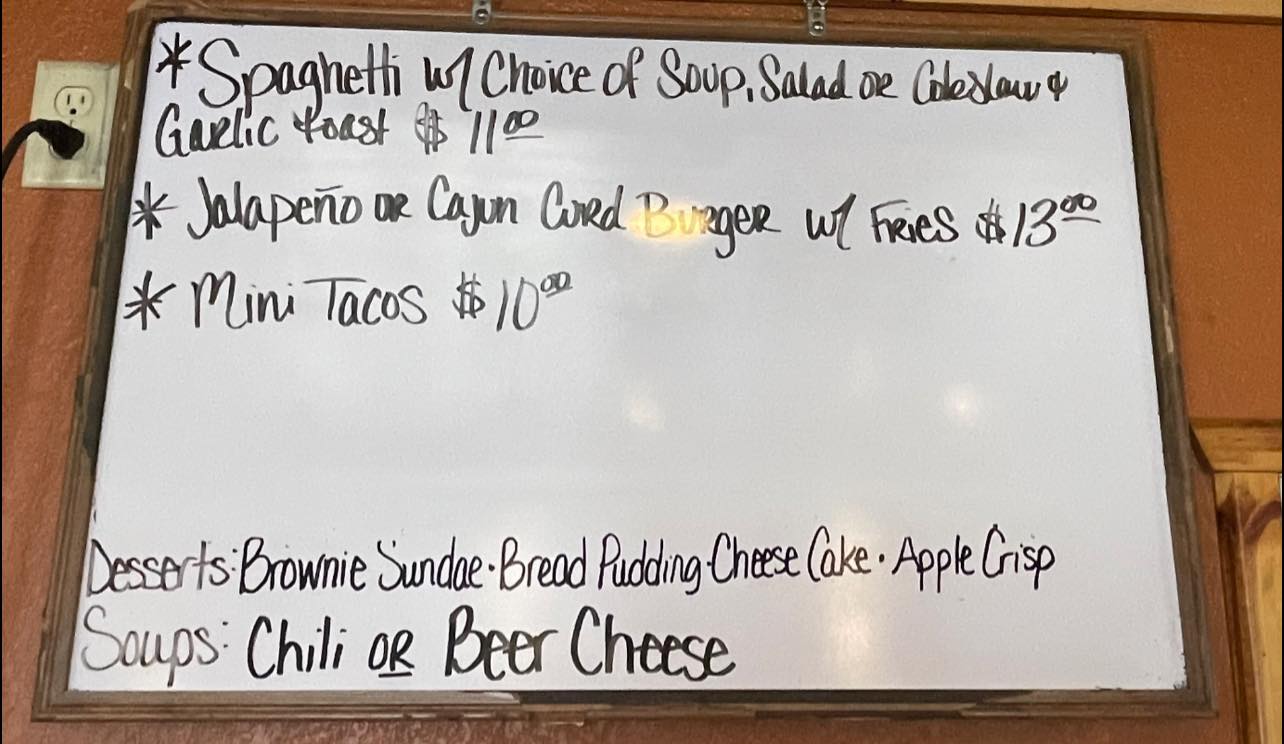 * Spaghetti w/ Choice of Soup, Salad or Coleslaw &
Garlic toast $ 11.00
* Jalapeño or Cajun Curd Burger w/ Fries $13.00
* Mini Tacos $10.00
Desserts: Brownie Sundae · Bread Pudding · Cheese Cake · Apple Crisp
Soups: Chili OR Beer Cheese